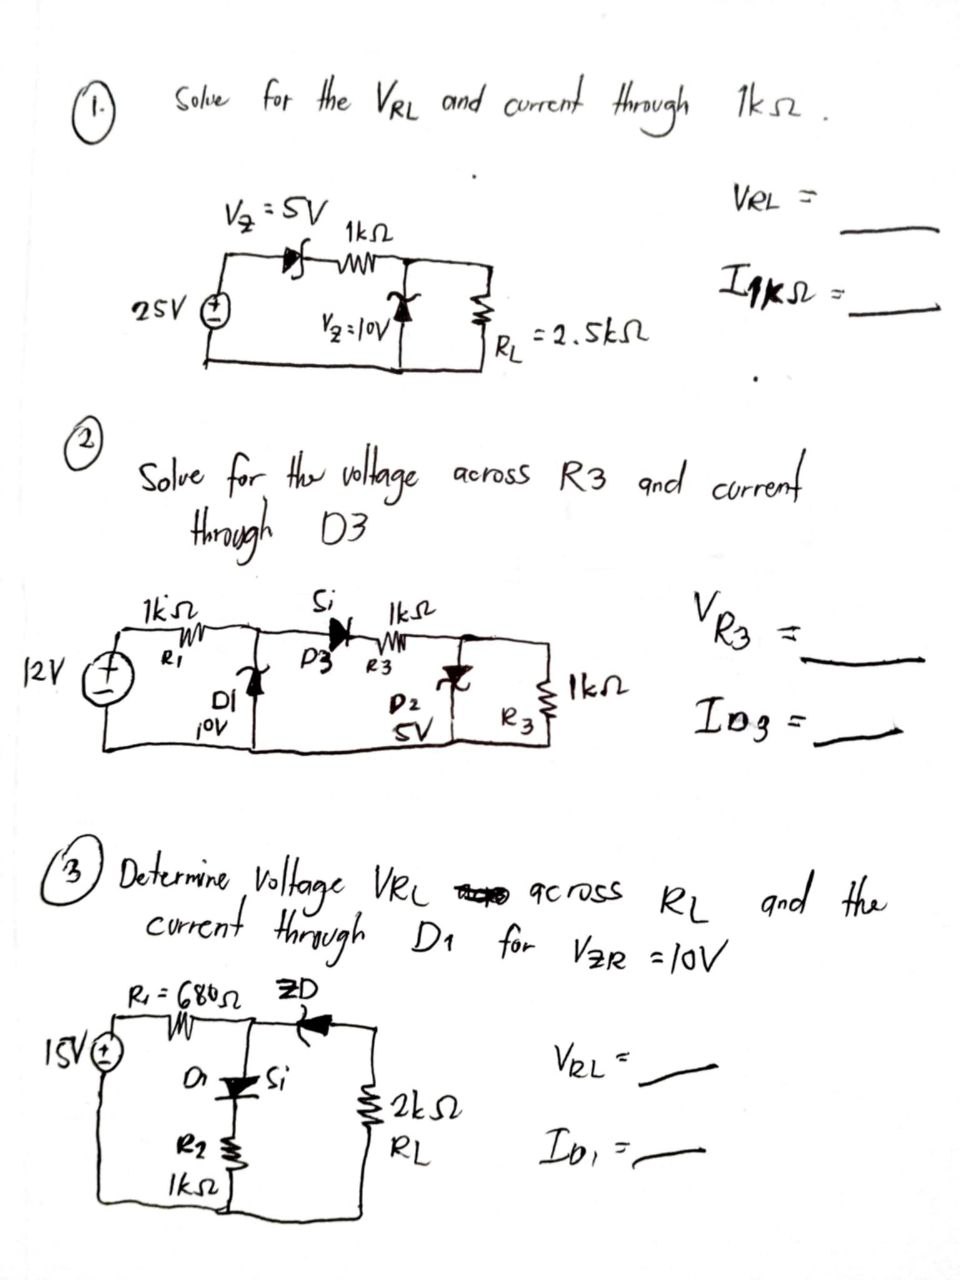 1. Solve for the VRL and current through 1kΩ.
VRL =
VZ = 5V
1kΩ
I1kΩ =
25V
VZ=10V
RL = 2.5kΩ
2
Solve for the voltage across R3 and current
through D3
1kΩ
Si
1kΩ
VR3 =
12V
R1
D3
R3
D1
10V
D2
5V
R3
1kΩ
ID3 =
3 Determine Voltage VRL across RL and the
current through D1 for VZR = 10V
R1 = 680Ω
ZD
15V
D1
Si
VRL =
2kΩ
RL
R2
1kΩ
ID1 =